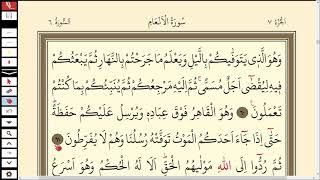 الجزء ٧ سورة الأنعام السورة ٦
وَهُوَ الَّذِي يَتَوَفّٰيكُمْ بِالَّيْلِ وَيَعْلَمُ مَا جَرَحْتُمْ بِالنَّهَارِ ثُمَّ يَبْعَثُكُمْ
فِيهِ لِيُقْضٰٓى اَجَلٌ مُسَمًّىۚ ثُمَّ اِلَيْهِ مَرْجِعُكُمْ ثُمَّ يُنَبِّئُكُمْ بِمَا كُنْتُمْ
تَعْمَلُونَ ﴿٦٠﴾ وَهُوَ الْقَاهِرُ فَوْقَ عِبَادِهِ وَيُرْسِلُ عَلَيْكُمْ حَفَظَةًۜ
حَتّٰٓى اِذَا جَٓاءَ اَحَدَكُمُ الْمَوْتُ تَوَفَّتْهُ رُسُلُنَا وَهُمْ لَا يُفَرِّطُونَ ﴿٦١﴾
ثُمَّ رُدُّٓوا اِلَى اللّٰهِ مَوْلٰيهُمُ الْحَقِّۜ اَلَا لَهُ الْحُكْمُ وَهُوَ اَسْرَعُ